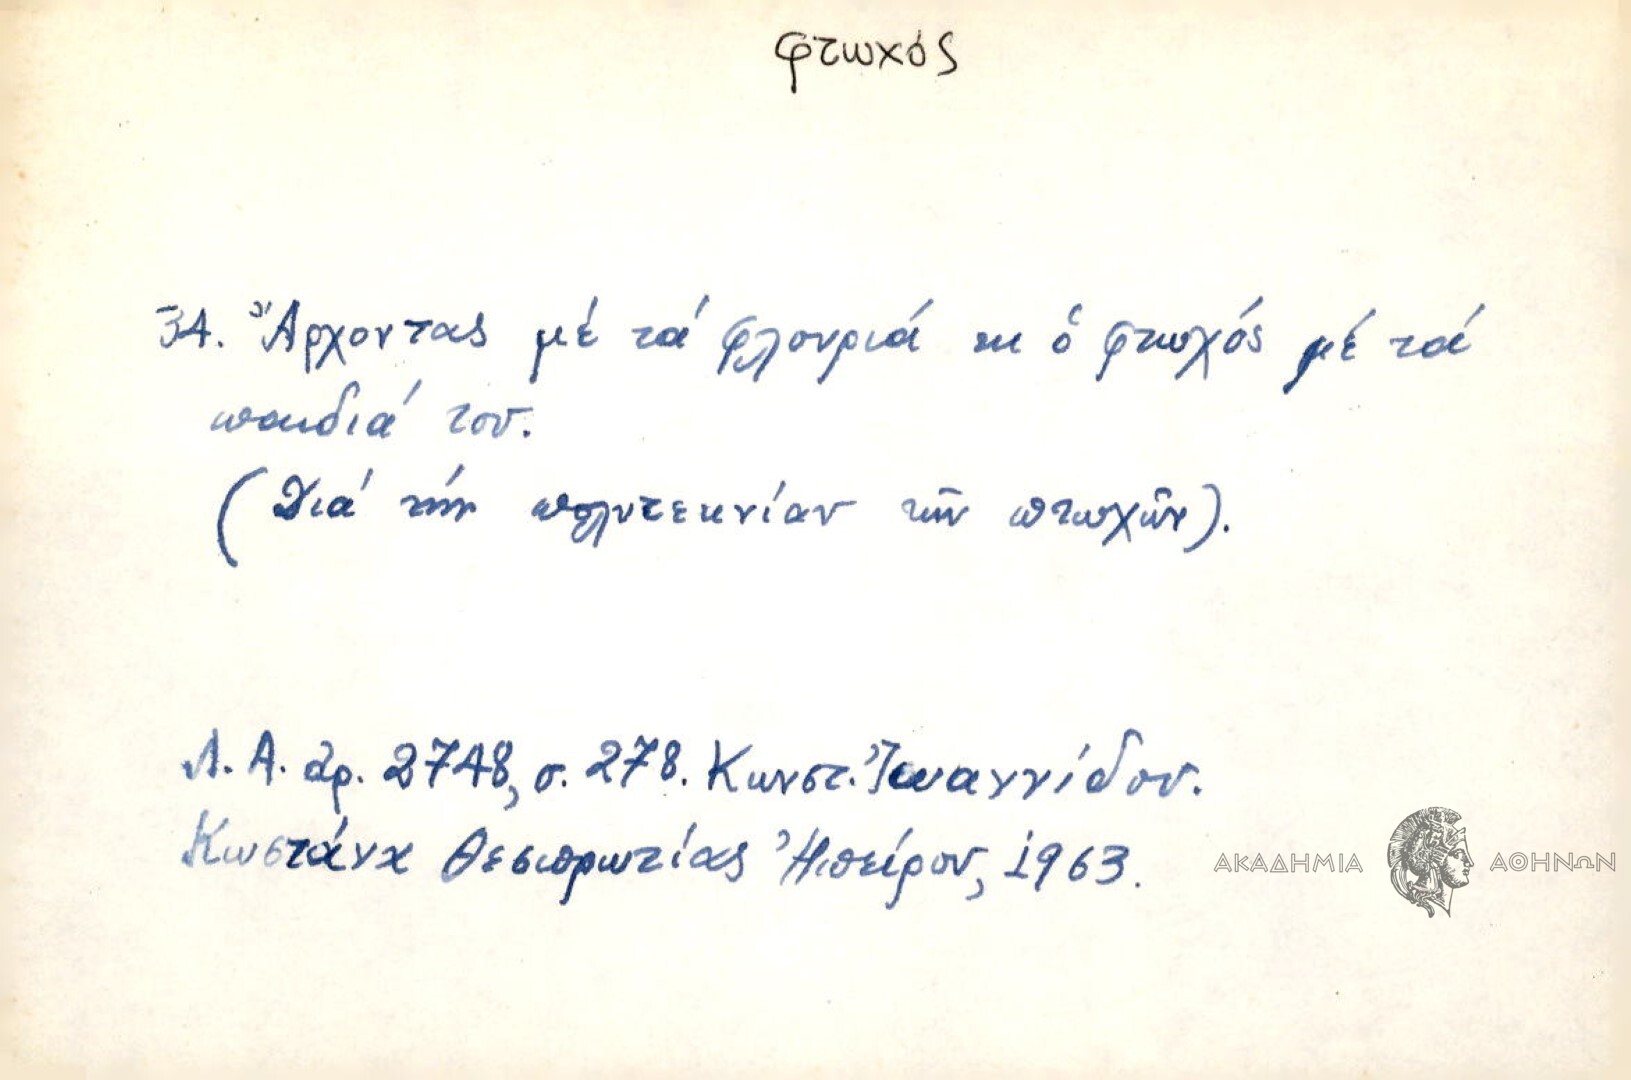 φτωχός
34. Ἄρχοντας μέ τά φλουριά κι ὁ φτωχός μέ τά
παιδιά του.
(Διά τήν πολυτεκνίαν τῶν πτωχῶν).
Λ. Α. ἀρ. 2748, σ. 278. Κωνστ. Ἰωαννίδου.
Κωστάνα Θεσπρωτίας Ἠπείρου, 1963.
ΑΚΑΔΗΜΙΑ ΑΘΗΝΩΝ